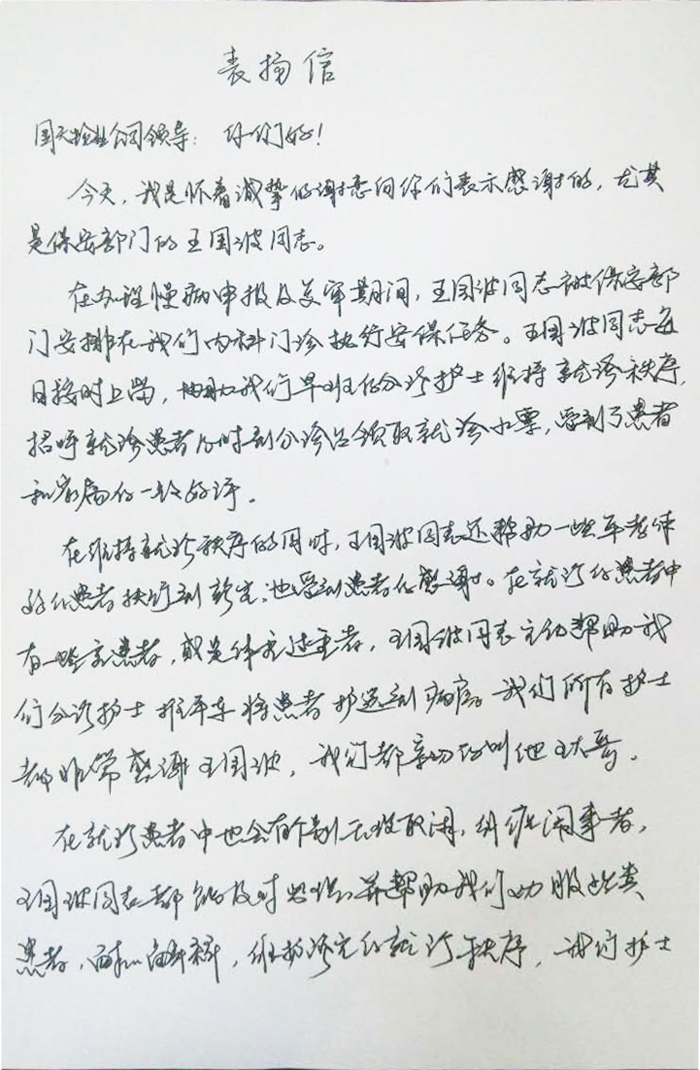 表扬信
国天物业公司领导：你们好！
今天，我是怀着诚挚的谢意向你们表示感谢的，尤其
是保安部门的王国波同志。
在办理慢病申报及复审期间，王国波同志被保安部
门安排在我们内科门诊执行安保任务。王国波同志每
日按时上岗，协助我们早班的分诊护士维持就诊秩序，
招呼就诊患者及时到分诊台领取就诊小票，受到了患者
和家属的一致好评。
在维持就诊秩序的同时，王国波同志还帮助一些年老体
弱的患者扶行到诊室，也受到患者的感谢。在就诊的患者中
有一些重患者，或是体重过重者，王国波同志主动帮助我
们分诊护士推平车将患者护送到病房。我们所有护士
都非常感谢王国波，我们都亲切的叫他王大哥。
在就诊患者中也会有个别无理取闹，纠缠闹事者，
王国波同志都能及时出现并帮助我们劝服此类
患者，耐心解释，维护诊室的就诊秩序，我们护士